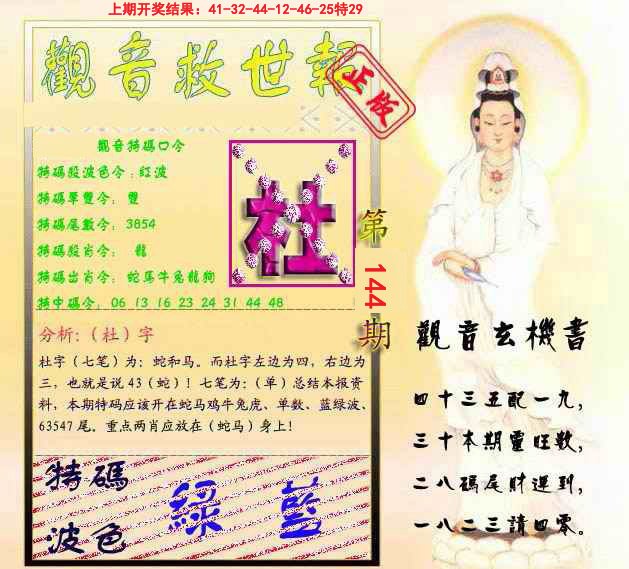 上期开奖结果：41-32-44-12-46-25特29
觀音救世報
正版
觀音特碼口令
特碼股波色令：紅波
特碼單雙令： 雙
特碼尾數令： 3854
特碼股肖令： 龍
特碼出肖令： 蛇馬牛兔龍狗
特中碼令： 06 13 16 23 24 31 44 48
社
第
144
期
分析:（社）字
社字（七笔）为：蛇和马。而社字左边为四，右边为
三，也就是说43（蛇）！七笔为：（单）总结本报资
料，本期特码应该开在蛇马鸡牛兔虎、单数、蓝绿波、
63547尾。重点两肖应放在（蛇马）身上！
特碼
波色
綠 藍
觀音玄機書
四十三五配一九，
三十本期靈旺數，
二八碼尾財運到，
一八二三請四零。